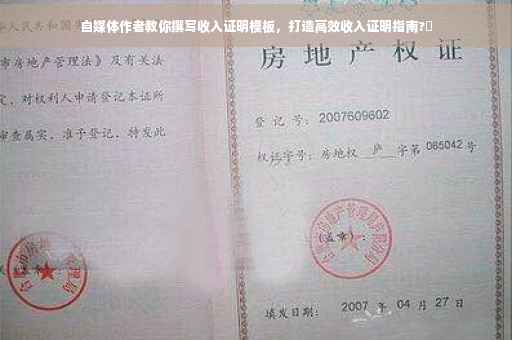 自媒体作者教你撰写收入证明模板，打造高效收入证明指南?
人民共和国
市房地产管理法》及有关法
定，对权利人申请登记本证所
审查属实，准予登记，特发此
房地产权证
登记号：2007609602
权证字号：房地权 庐 字第 085042 号
(盖章)：
填发日期：2007 年 04 月 27 日